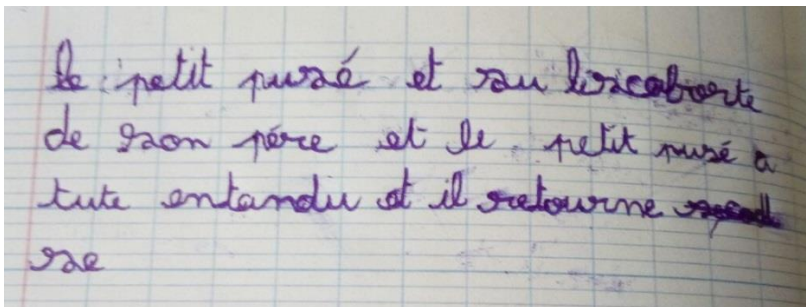 le petit pusé et su lescaborte
de son pére et le petit pusé a
tute entandu et il retourne
se